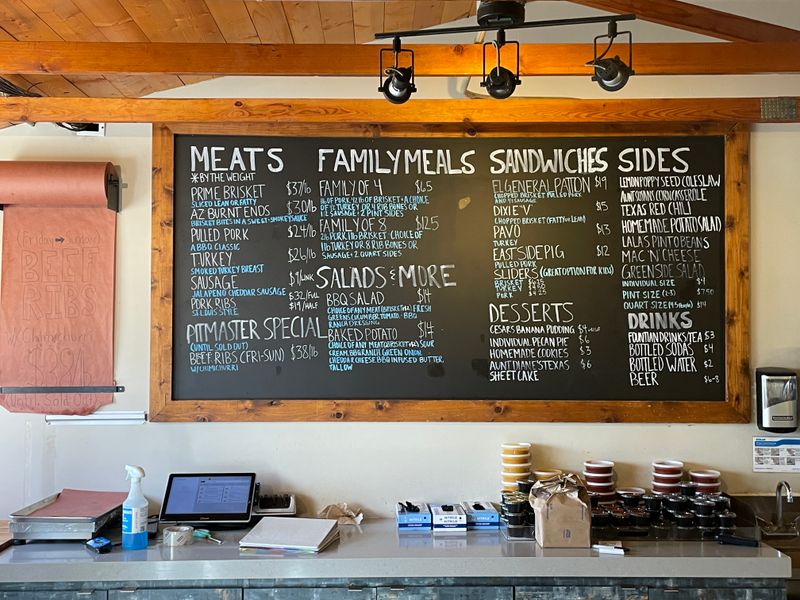 MEATS
*BY THE WEIGHT
PRIME BRISKET $37/lb
SLICED LEAN OR FATTY
AZ BURNT ENDS $30/lb
BRISKET BITES IN A SWEET + SMOKEY SAUCE
PULLED PORK $24/lb
ABQ CLASSIC
TURKEY $26/lb
SMOKED TURKEY BREAST
SAUSAGE $9/LINK
JALAPENO CHEDDAR SAUSAGE
PORK RIBS $32/FULL
ST LOUIS STYLE $19/HALF
PITMASTER SPECIAL
(UNTIL SOLD OUT)
BEEF RIBS (FRI-SUN) $38/lb
W/CHIMICHURRI
FAMILY MEALS
FAMILY OF 4 $65
SAUSAGE + 2 PINT SIDES
FAMILY OF 8 $125
1 lb TURKEY OR 8 RIB BONES OR
SAUSAGE + 2 QUART SIDES
SALADS & MORE
BBQ SALAD $14
CHOICE OF ANY MEAT FRESH
GREENS CUCUMBER TOMATO - BBQ
RANCH DRESSING
BAKED POTATO $14
CHOICE OF ANY MEAT SOUR
CREAM, BBQ RANCH GREEN ONION
CHEDDAR CHEESE BBQ INFUSED BUTTER,
TALLOW
SANDWICHES
EL GENERAL PATTON $19
CHOPPED BRISKET PULLED PORK
AND 1/2 SAUSAGE
DIXIE'V $15
CHOPPED BRISKET (FATTY or LEAN)
PAVO $13
TURKEY
EAST SIDE PIG $12
PULLED PORK
SLIDERS (GREAT OPTION FOR KIDS)
BRISKET
TURKEY
PORK
DESSERTS
CESARS BANANA PUDDING $4
INDIVIDUAL PECAN PIE $6
HOMEMADE COOKIES $3
AUNT DIANE'S TEXAS $6
SHEET CAKE
SIDES
LEMON POPPY SEED COLESLAW
AUNT SUSAN'S CORN CASSEROLE
TEXAS RED CHILI
HOMEMADE POTATO SALAD
LALA'S PINTO BEANS
MAC 'N CHEESE
GREENSIDE SALAD
INDIVIDUAL SIZE $4
PINT SIZE (2-3) $7.50
QUART SIZE $14
DRINKS
FOUNTIAN DRINKS/TEA $3
BOTTLED SODAS $4
BOTTLED WATER $2
BEER $6-8
Friday
BEEF
RIBS
Until Sold Out